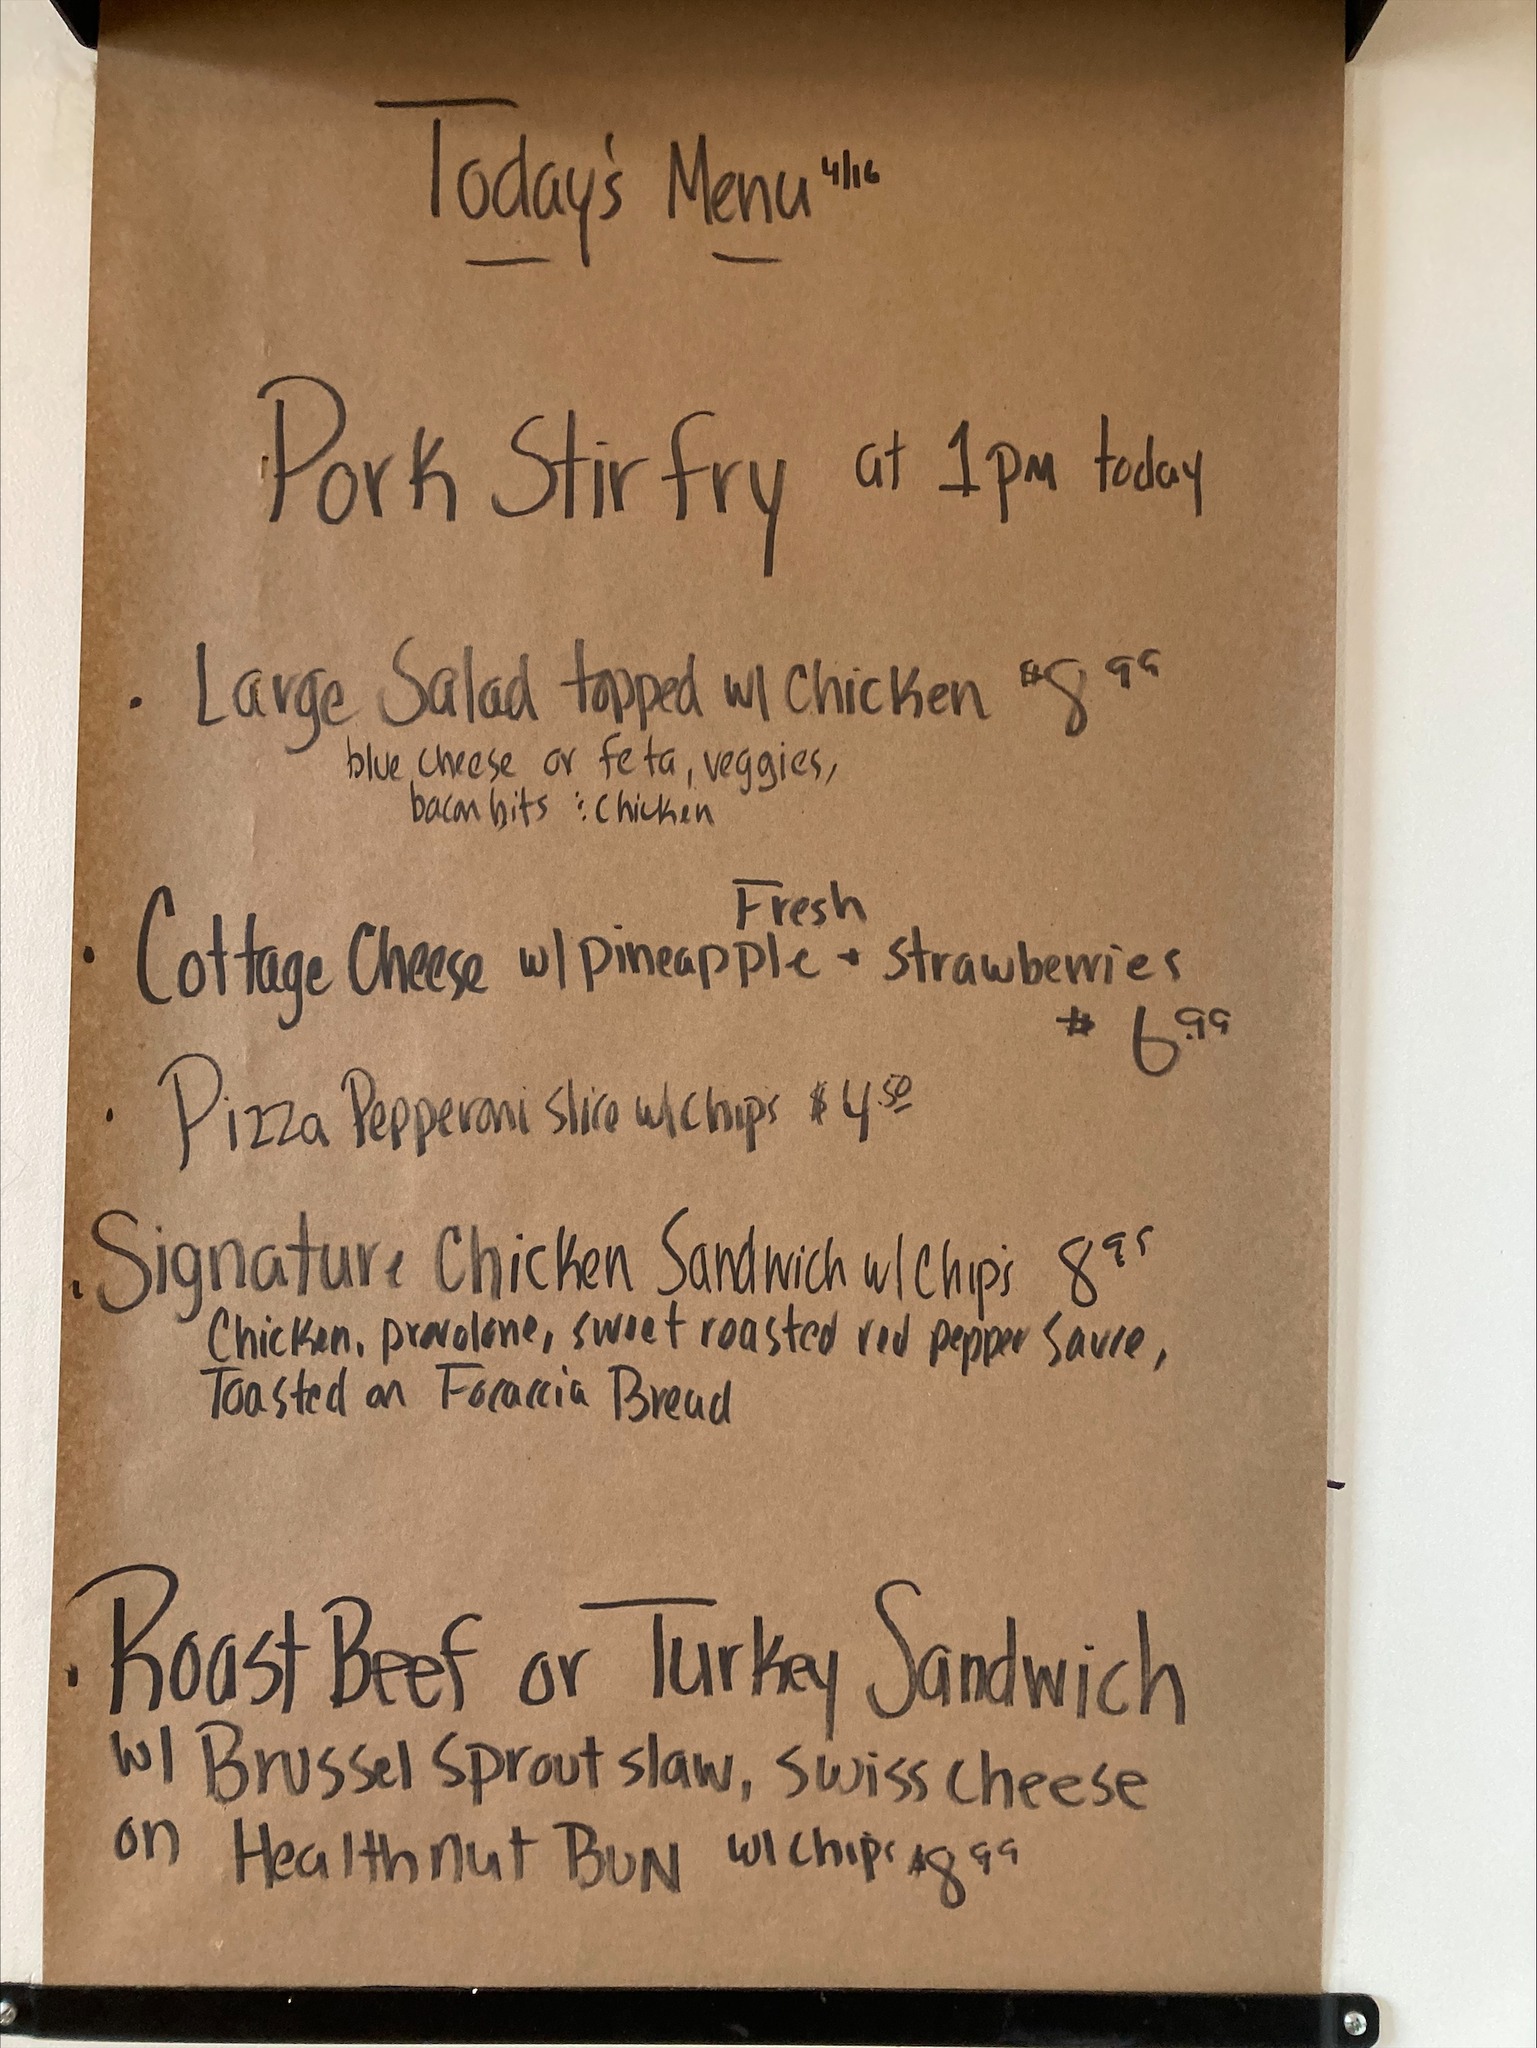 Today's Menu 4/16
Pork Stir fry at 1pm today
· Large Salad topped w/ Chicken $8 99
blue cheese or feta, veggies,
bacon bits & chicken
Fresh
· Cottage Cheese w/ pineapple + strawberries
$ 6.99
· Pizza Pepperoni slice w/ chips $4.50
· Signature Chicken Sandwich w/ Chips 8 95
Chicken, provolone, sweet roasted red pepper sauce,
Toasted on Focaccia Bread
· Roast Beef or Turkey Sandwich
w/ Brussel sprout slaw, swiss cheese
on Healthnut BUN w/ chips $8 99